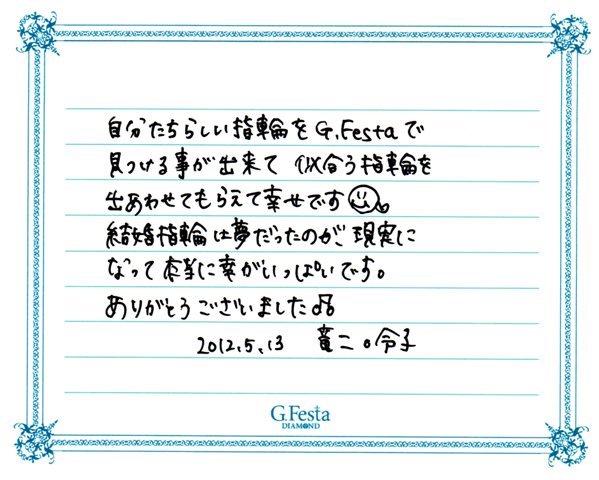 自分たちらしい指輪をG.Festaで
見つける事が出来て 似合う指輪を
出あわせてもらえて幸せです
結婚指輪は夢だったのが、現実に
なって本当に幸がいっぱいです。
ありがとうございました♫
2012.5.13 竜二。令子
G.Festa
DIAMOND